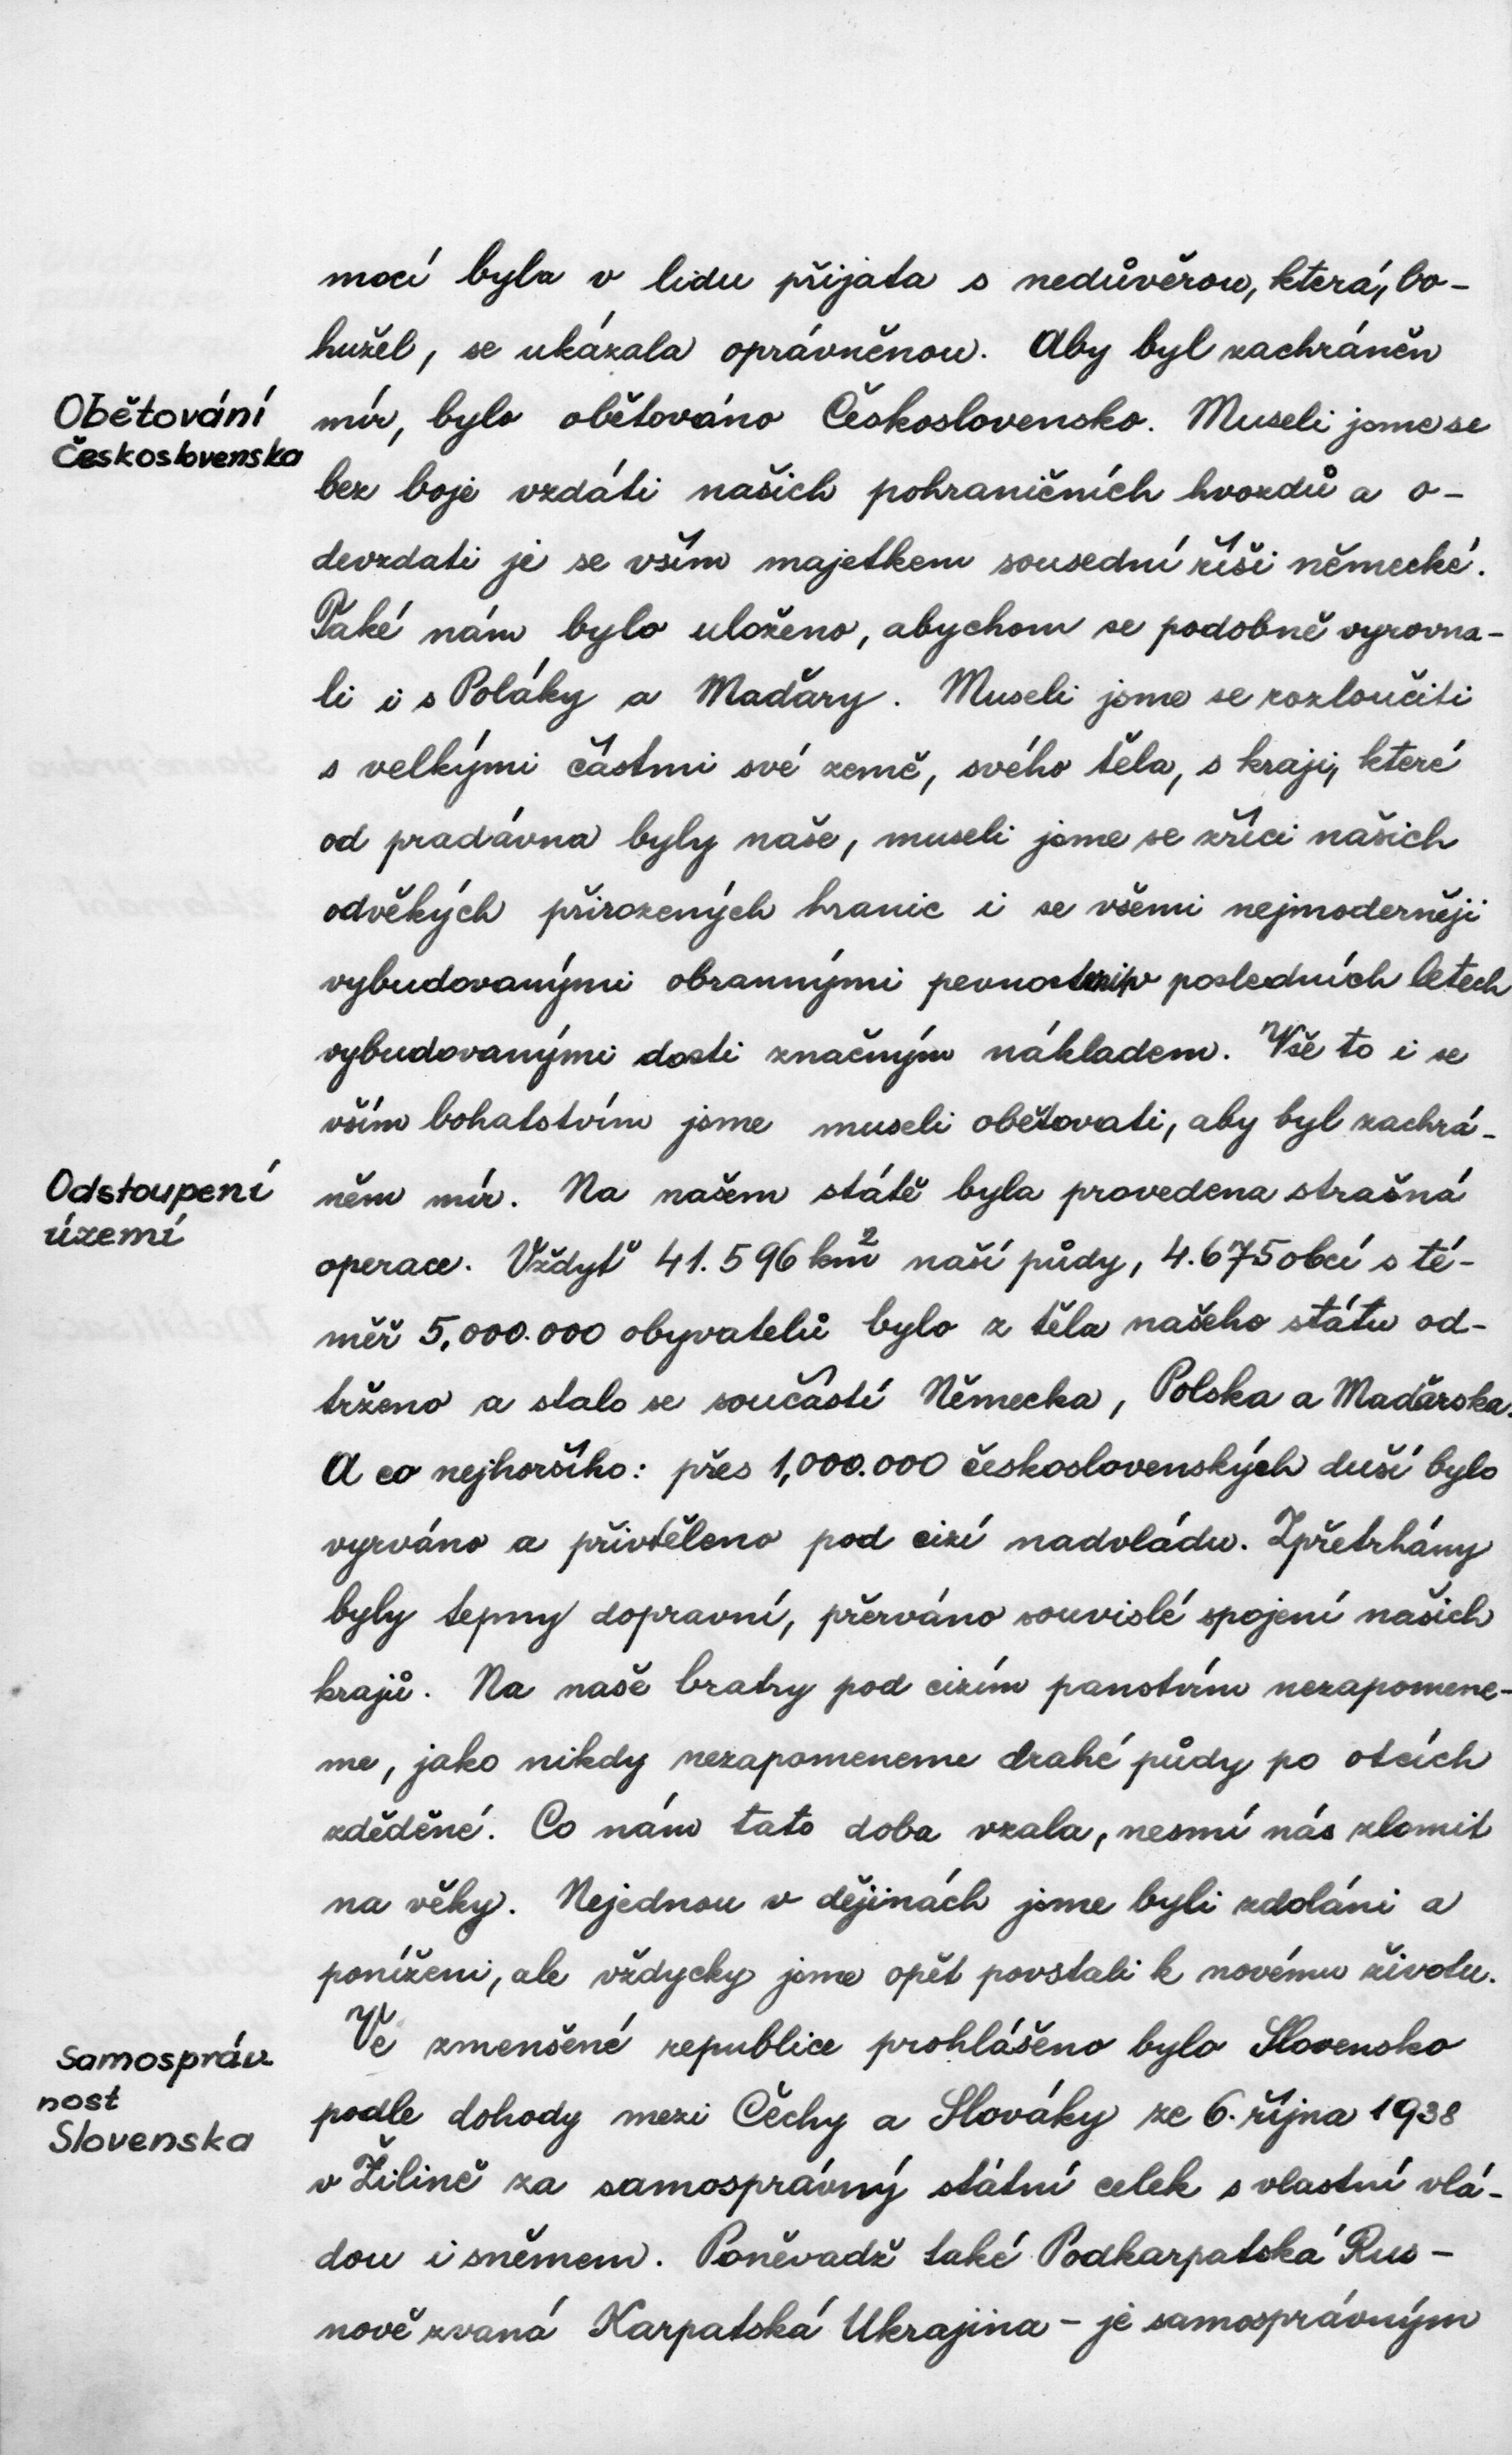 mocí byla v lidu přijata s nedůvěrou, která, bo-
hužel, se ukázala oprávněnou. Aby byl zachráněn
Obětování
Československa
mír, bylo obětováno Československo. Museli jsme se
bez boje vzdáti našich pohraničních hvozdů a o-
devzdati je se vším majetkem sousední říši německé.
Také nám bylo uloženo, abychom se podobně vyrovna-
li i s Poláky a Maďary. Museli jsme se rozloučiti
s velkými částmi své země, svého těla, s kraji, které
od pradávna byly naše, museli jsme se zříci našich
odvěkých přirozených hranic i se všemi nejmoderněji
vybudovanými obrannými pevnostmi v posledních letech
vybudovanými dosti značným nákladem. Vše to i se
vším bohatstvím jsme museli obětovati, aby byl zachrá-
Odstoupení
území
něm mír. Na našem státě byla provedena strašná
operace. Vždyť 41.596 km² naší půdy, 4.675 obcí s té-
měř 5,000.000 obyvatelů bylo z těla našeho státu od-
trženo a stalo se součástí Německa, Polska a Maďarska.
A co nejhoršího: přes 1,000.000 československých duší bylo
vyrváno a přivtěleno pod cizí nadvládu. Zpřetrhány
byly tepny dopravní, přerváno souvislé spojení našich
krajů. Na naše bratry pod cizím panstvím nezapomene-
me, jako nikdy nezapomeneme drahé půdy po otcích
zděděné. Co nám tato doba vzala, nesmí nás zlomit
na věky. Nejednou v dějinách jsme byli zdoláni a
poníženi, ale vždycky jsme opět povstali k novému životu.
Samospráv
nost
Slovenska
Ve zmenšené republice prohlášeno bylo Slovensko
podle dohody mezi Čechy a Slováky ze 6. října 1938
v Žilině za samosprávný státní celek s vlastní vlá-
dou i sněmem. Poněvadž také Podkarpatská Rus -
nově zvaná Karpatská Ukrajina - je samosprávným